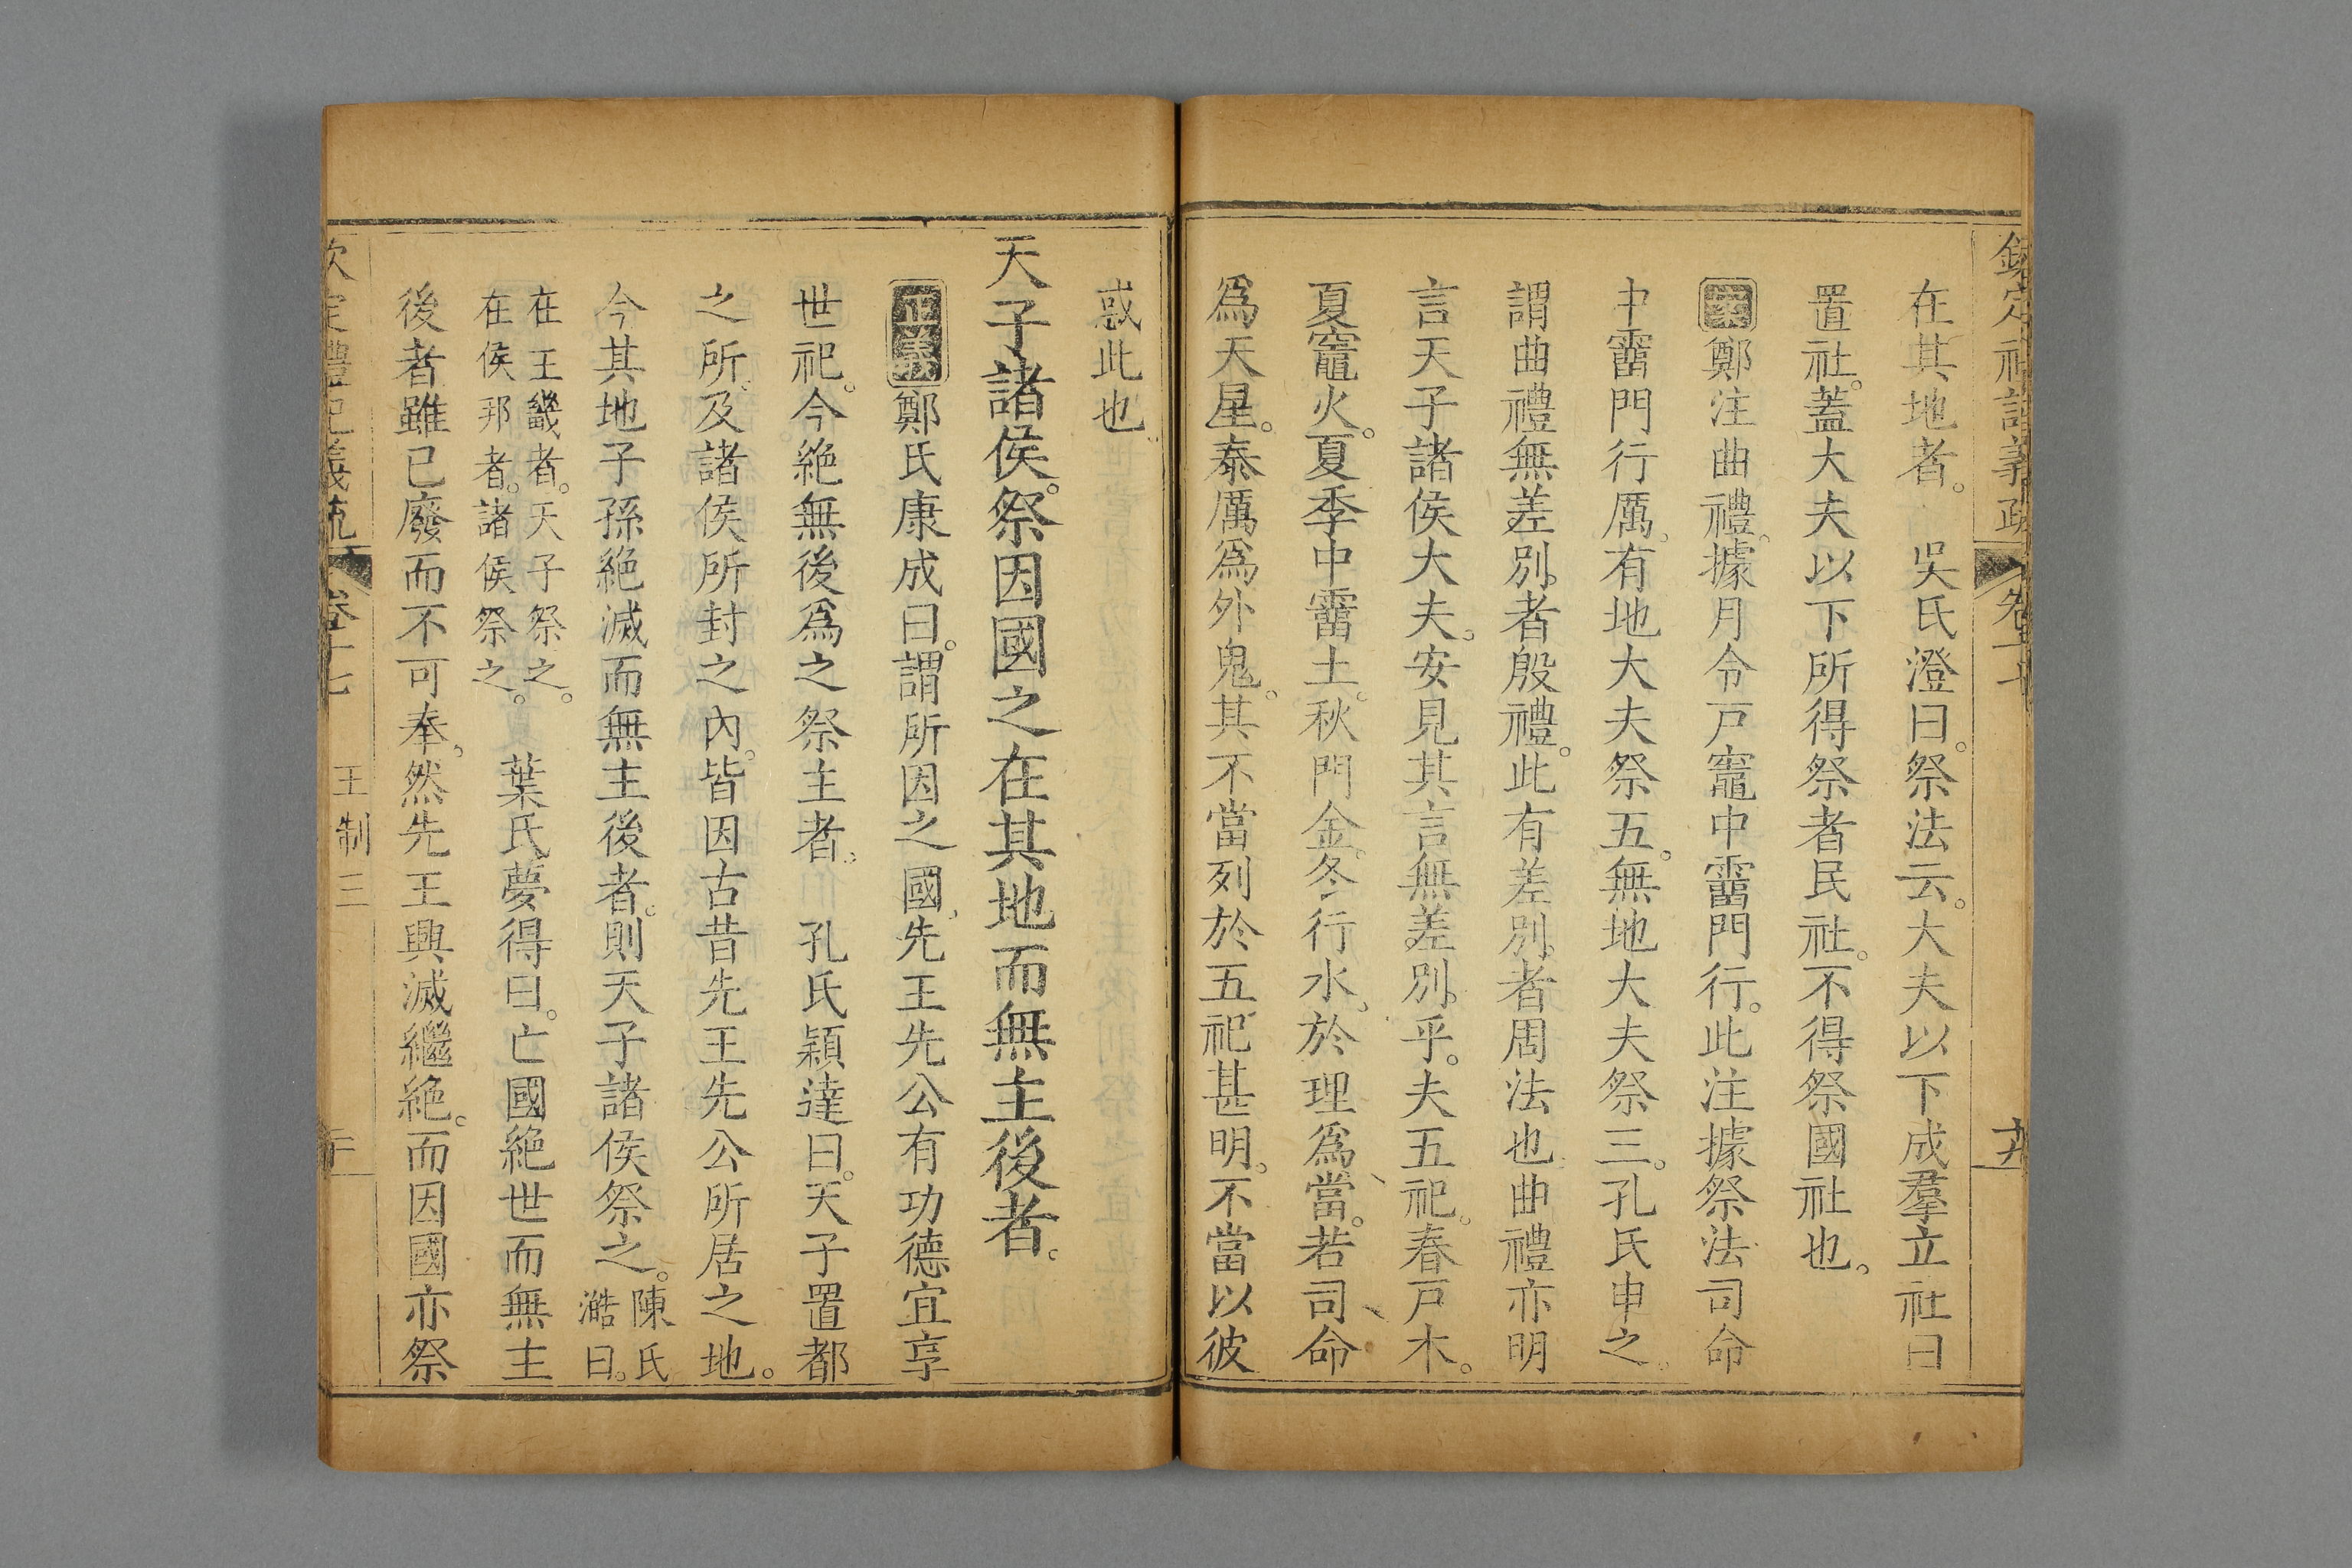 欽定禮記義疏 卷十七 十九
在其地者。 吳氏澄曰。祭法云。大夫以下成羣立社曰
置社。蓋大夫以下所得祭者民社。不得祭國社也。
案鄭注曲禮。據月令戸竈中霤門行。此注據祭法司命
中霤門行厲。有地大夫祭五。無地大夫祭三。孔氏申之。
謂曲禮無差別者殷禮。此有差別者周法也。曲禮亦明
言天子諸侯大夫。安見其言無差別乎。夫五祀。春戸木。
夏竈火。夏季中霤土。秋門金。冬行水。於理爲當。若司命
爲天星。泰厲爲外鬼。其不當列於五祀甚明。不當以彼
惑此也
天子諸侯。祭因國之在其地而無主後者。
正義鄭氏康成曰。謂所因之國。先王先公有功德宜享
世祀。今絶無後爲之祭主者。 孔氏穎達曰。天子置都
之所。及諸侯所封之內。皆因古昔先王先公所居之地。
今其地子孫絶滅而無主後者。則天子諸侯祭之。陳氏澔曰。
在王畿者。天子祭之。在侯邦者。諸侯祭之。 葉氏夢得曰。亡國絶世而無主
後者雖已廢而不可奉。然先王興滅繼絶。而因國亦祭
欽定禮記義疏 卷十七 王制三